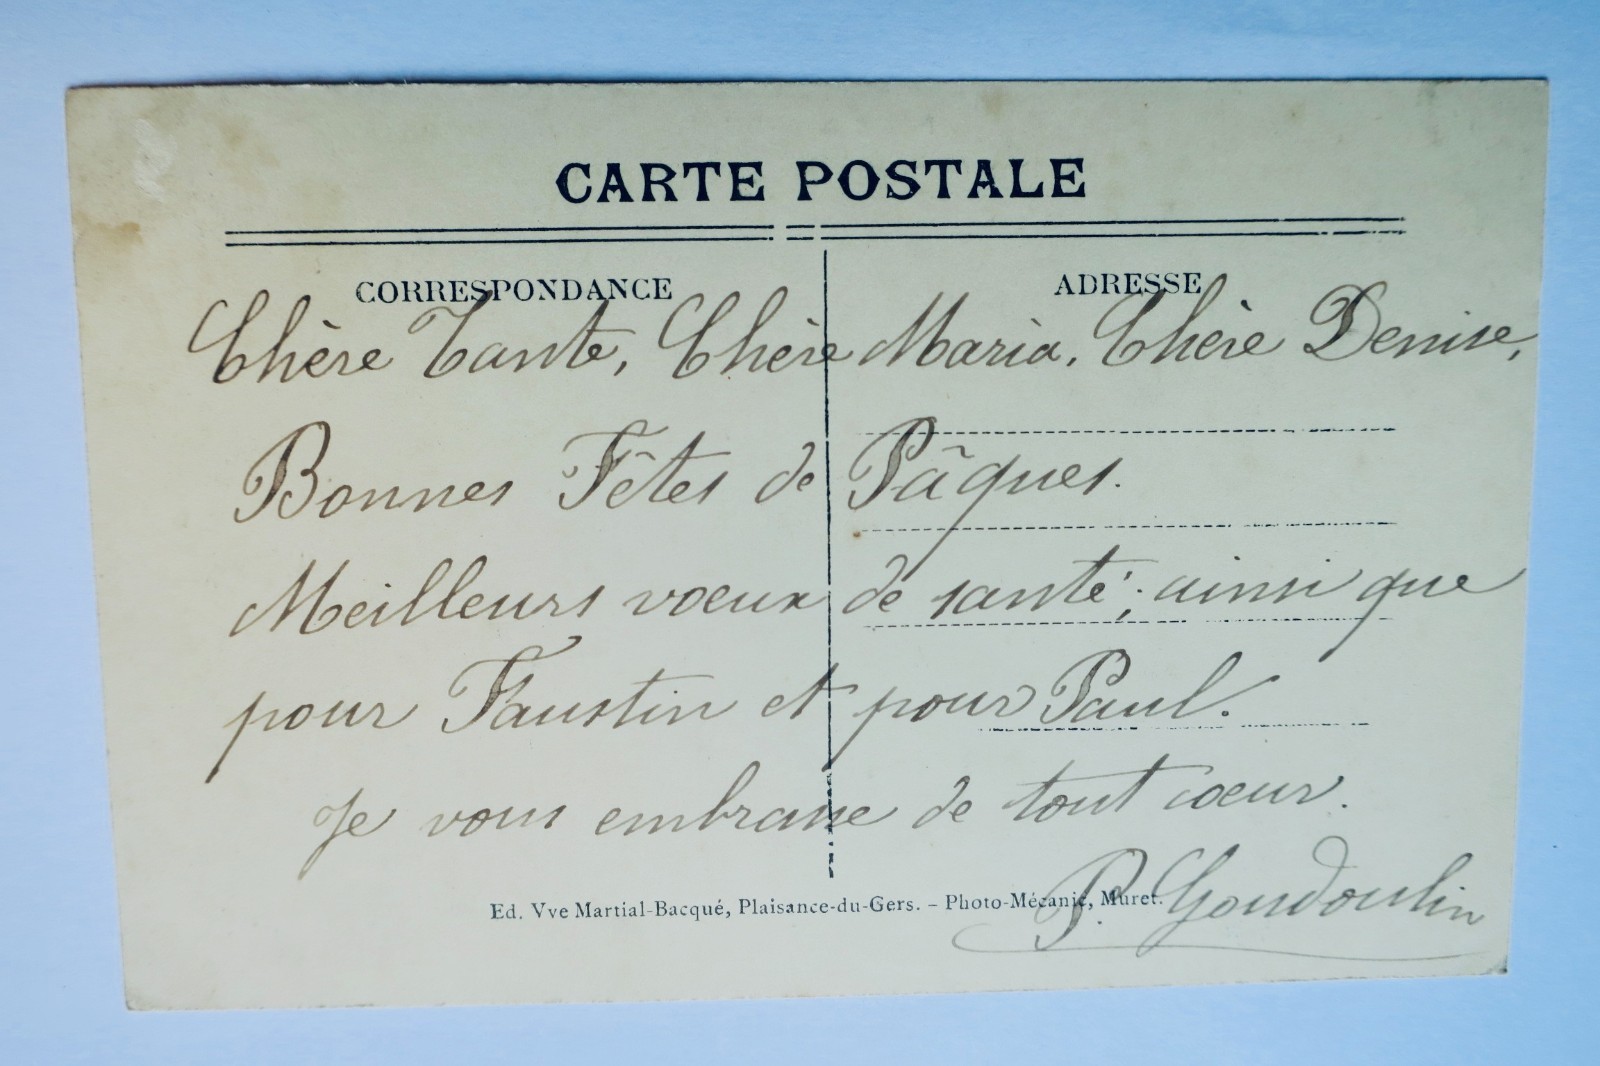 CARTE POSTALE
CORRESPONDANCE
ADRESSE
Chère Tante, Chère Maria, Chère Denise,
Bonnes Fêtes de Pâques.
Meilleurs vœux de santé; ainsi que
pour Faustin et pour Paul.
Je vous embrasse de tout cœur.
P. Goudoulin
Ed. Vve Martial-Bacqué, Plaisance-du-Gers. – Photo-Mécanic, Muret.